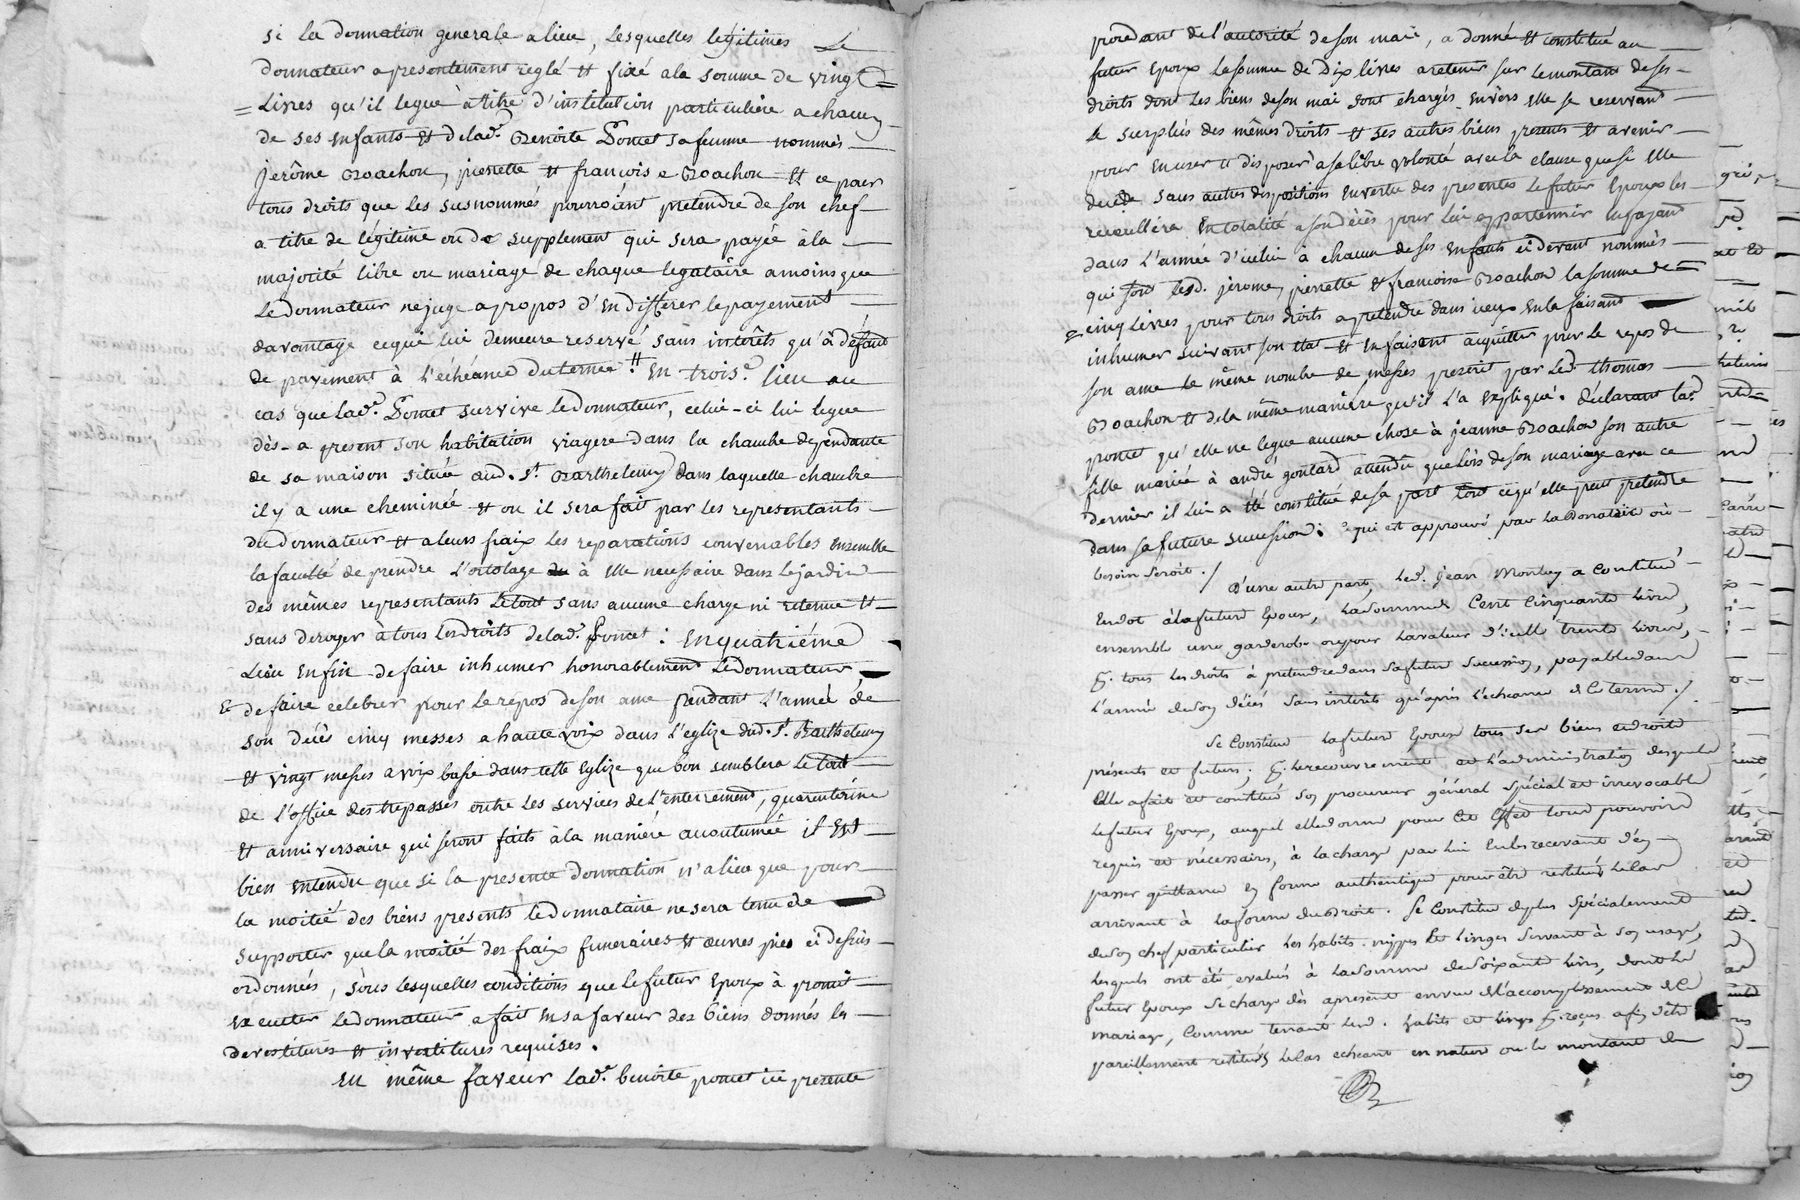 si la donnation generale a lieu, lesquelles légitimes Le
donnateur a presentement reglé et fixé a la somme de vingt
Livres qu'il legue à titre d'institution particuliere a chacun
de ses enfants et de lad.e Benoite Poncet sa femme nommés
jerôme Boachon, pierrette et francoise Boachon et ce pour
tous droits que les susnommés pourroient pretendre de son chef
a titre de légitime ou de supplement qui sera payée à la
majorité libre ou mariage de chaque legataire a moins que
Le donnateur ne juge a propos d'en differer le payement
davantage ce qui lui demeure reservé sans interêts qu'à défaut
de payement à l'échéance du terme !! En trois.e lieu au
cas que lad.e Poncet survive le donnateur, celui-ci lui legue
dès-a present son habitation viagere dans la chambre dependante
de sa maison située aud. St. Barthelemy dans laquelle chambre
il y a une cheminée et ou il sera fait par les representants
du donnateur et a leurs fraix les reparations convenables ensemble
la faculté de prendre l'ortolage à elle necessaire dans le jardin
des mêmes representants Le tout sans aucune charge ni retenue et
sans deroger à tous les droits de lad.e Poncet : En quatriéme
Lieu enfin de faire inhumer honorablement Le donnateur,
& de faire celebrer pour le repos de son ame pendant l'année de
son décés cinq messes a haute voix dans l'eglize dud. St. Barthelemy
et vingt messes a voix basse dans telle Eglize que bon semblera Le tout
de l'office des trepassés outre les services de l'enterrement, quarantaine
et anniversaire qui seront faits à la maniére accoutumée il est
bien entendu que si la presente donnation n'a lieu que pour
la moitié des biens presents le donnataire ne sera tenu de
supporter que la moitié des fraix funeraires et œuvres pies ci dessus
ordonnés, sous lesquelles conditions que le futur Epoux à promit
executer Le donnateur a fait en sa faveur des biens donnés les
devestitures et investitures requises.
En même faveur lad.e benoite poncet ici presente
procedant de l'autorité de son mari, a donné et constitué au
futur Epoux la somme de Dix livres a retenir sur le montant de ses
droits dont les biens de son mari sont chargés envers elle se reservant
le surplus des mêmes droits et ses autres biens presents et avenir
pour en user et disposer a sa libre volonté avec la clause que si elle
decede sans autres dispositions en vertu des presentes Le futur Epoux les
recueillera en totalité a son décès pour lui appartennir en payant
dans l'année d'icelui à chacun de ses enfants ci devant nommés
qui sont lesd. jerome, pierrette et francoise Boachon la somme de
cinq Livres pour tous droits a pretendre dans iceux en la faisant
inhumer suivant son etat et en faisant acquitter pour le repos de
son ame le même nombre de messes prescrit par led. thomas
Boachon et de la même maniére qu'il l'a expliqué. déclarant lad.e
poncet qu'elle ne legue aucune chose à jeanne Boachon son autre
fille mariée à andré goutard attendu que lors de son mariage avec ce
dernier il lui a été constitué de sa part tout ce qu'elle peut pretendre
dans sa future succession : ce qui est approuvé par la donatrice où
besoin seroit ./
D'une autre part, led. jean Montuy a constitué
en dot à la future Epouse, la somme de Cent Cinquante livres,
ensemble une garderobe ou pour la valeur d'icelle trente livres,
p. tous les droits à pretendre dans sa future succession, payable dans
l'année de son décés sans intérêts qu'après l'écheance de ce terme ./
Se Constitue la future Epouse tous ses biens et droits
présents et futurs, p. le recouvrement et l'administration desquels
elle a fait et constitué son procureur général spécial et irrevocable
Le futur Epoux, auquel elle donne pour cet effet tout pouvoir
requis et nécessaire, à la charge par lui en les recevant d'en
passer quittance en forme authentique pour être restitués le cas
arrivant à la forme du Droit. Se Constitue de plus spécialement
de son chef particulier les habits. nippes et linges servant à son usage,
lesquels ont été evalués à la somme de soixante livres, dont le
futur Epoux se charge dès apresent en vue de l'accomplissement de ce
mariage, comme tenant lesd. habits et linges p. reçus afin d'être
pareillement restitués le cas echeant en nature ou le montant de